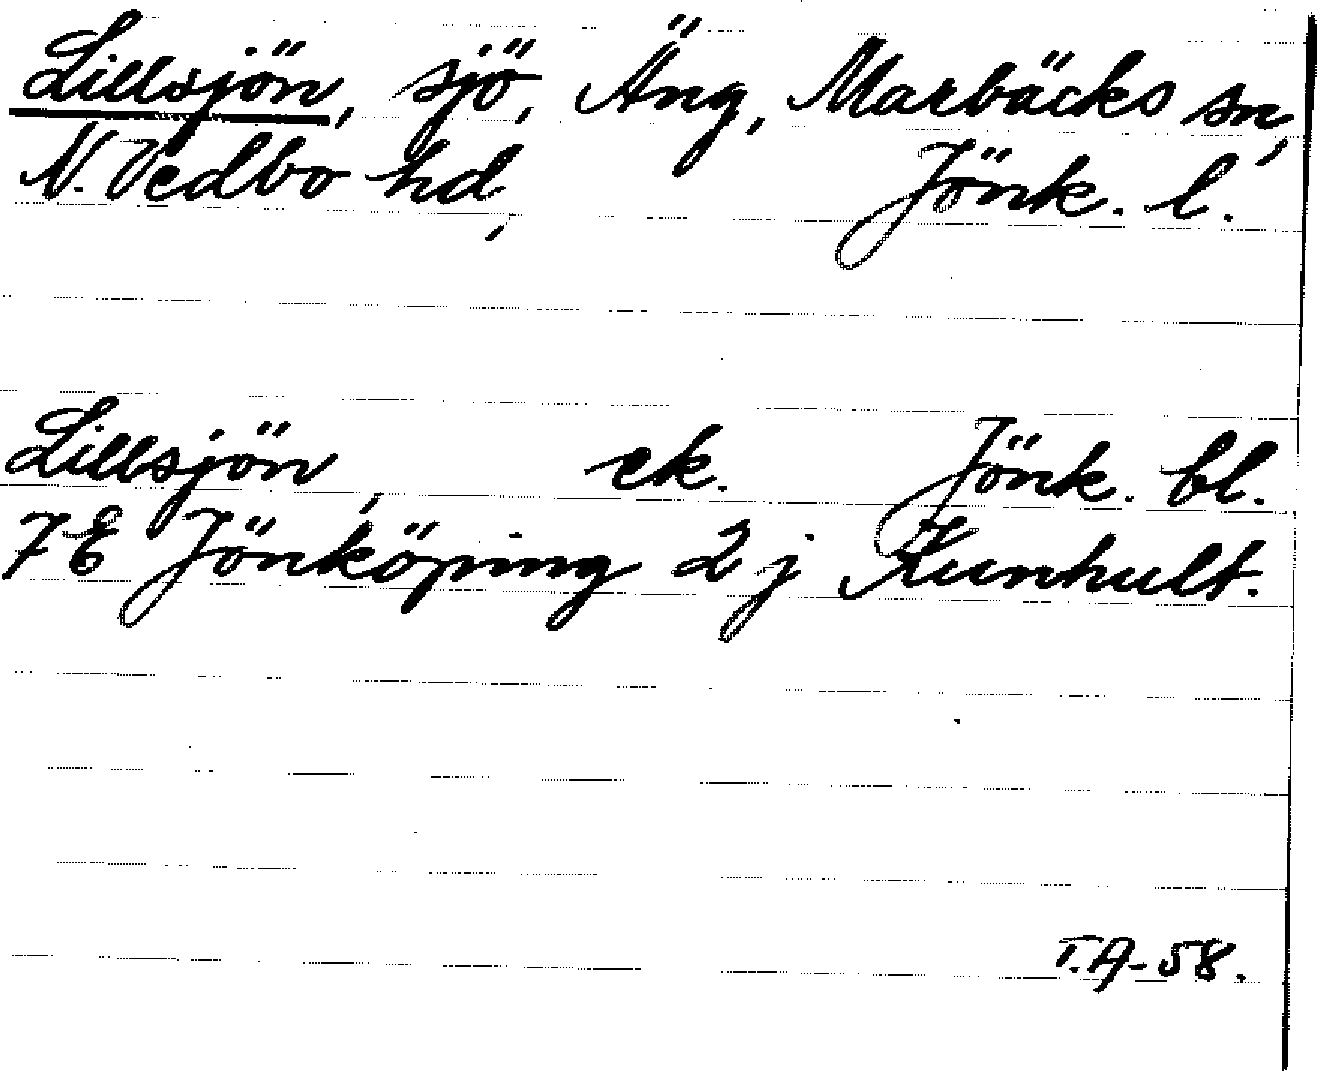 Lillsjön, sjö, Äng, Marbäcks sn,
N. Vedbo hd, Jönk. l.
Lillsjön, ek. Jönk. bl.
7E Jönköping 2j Kunhult.
T.A-58.